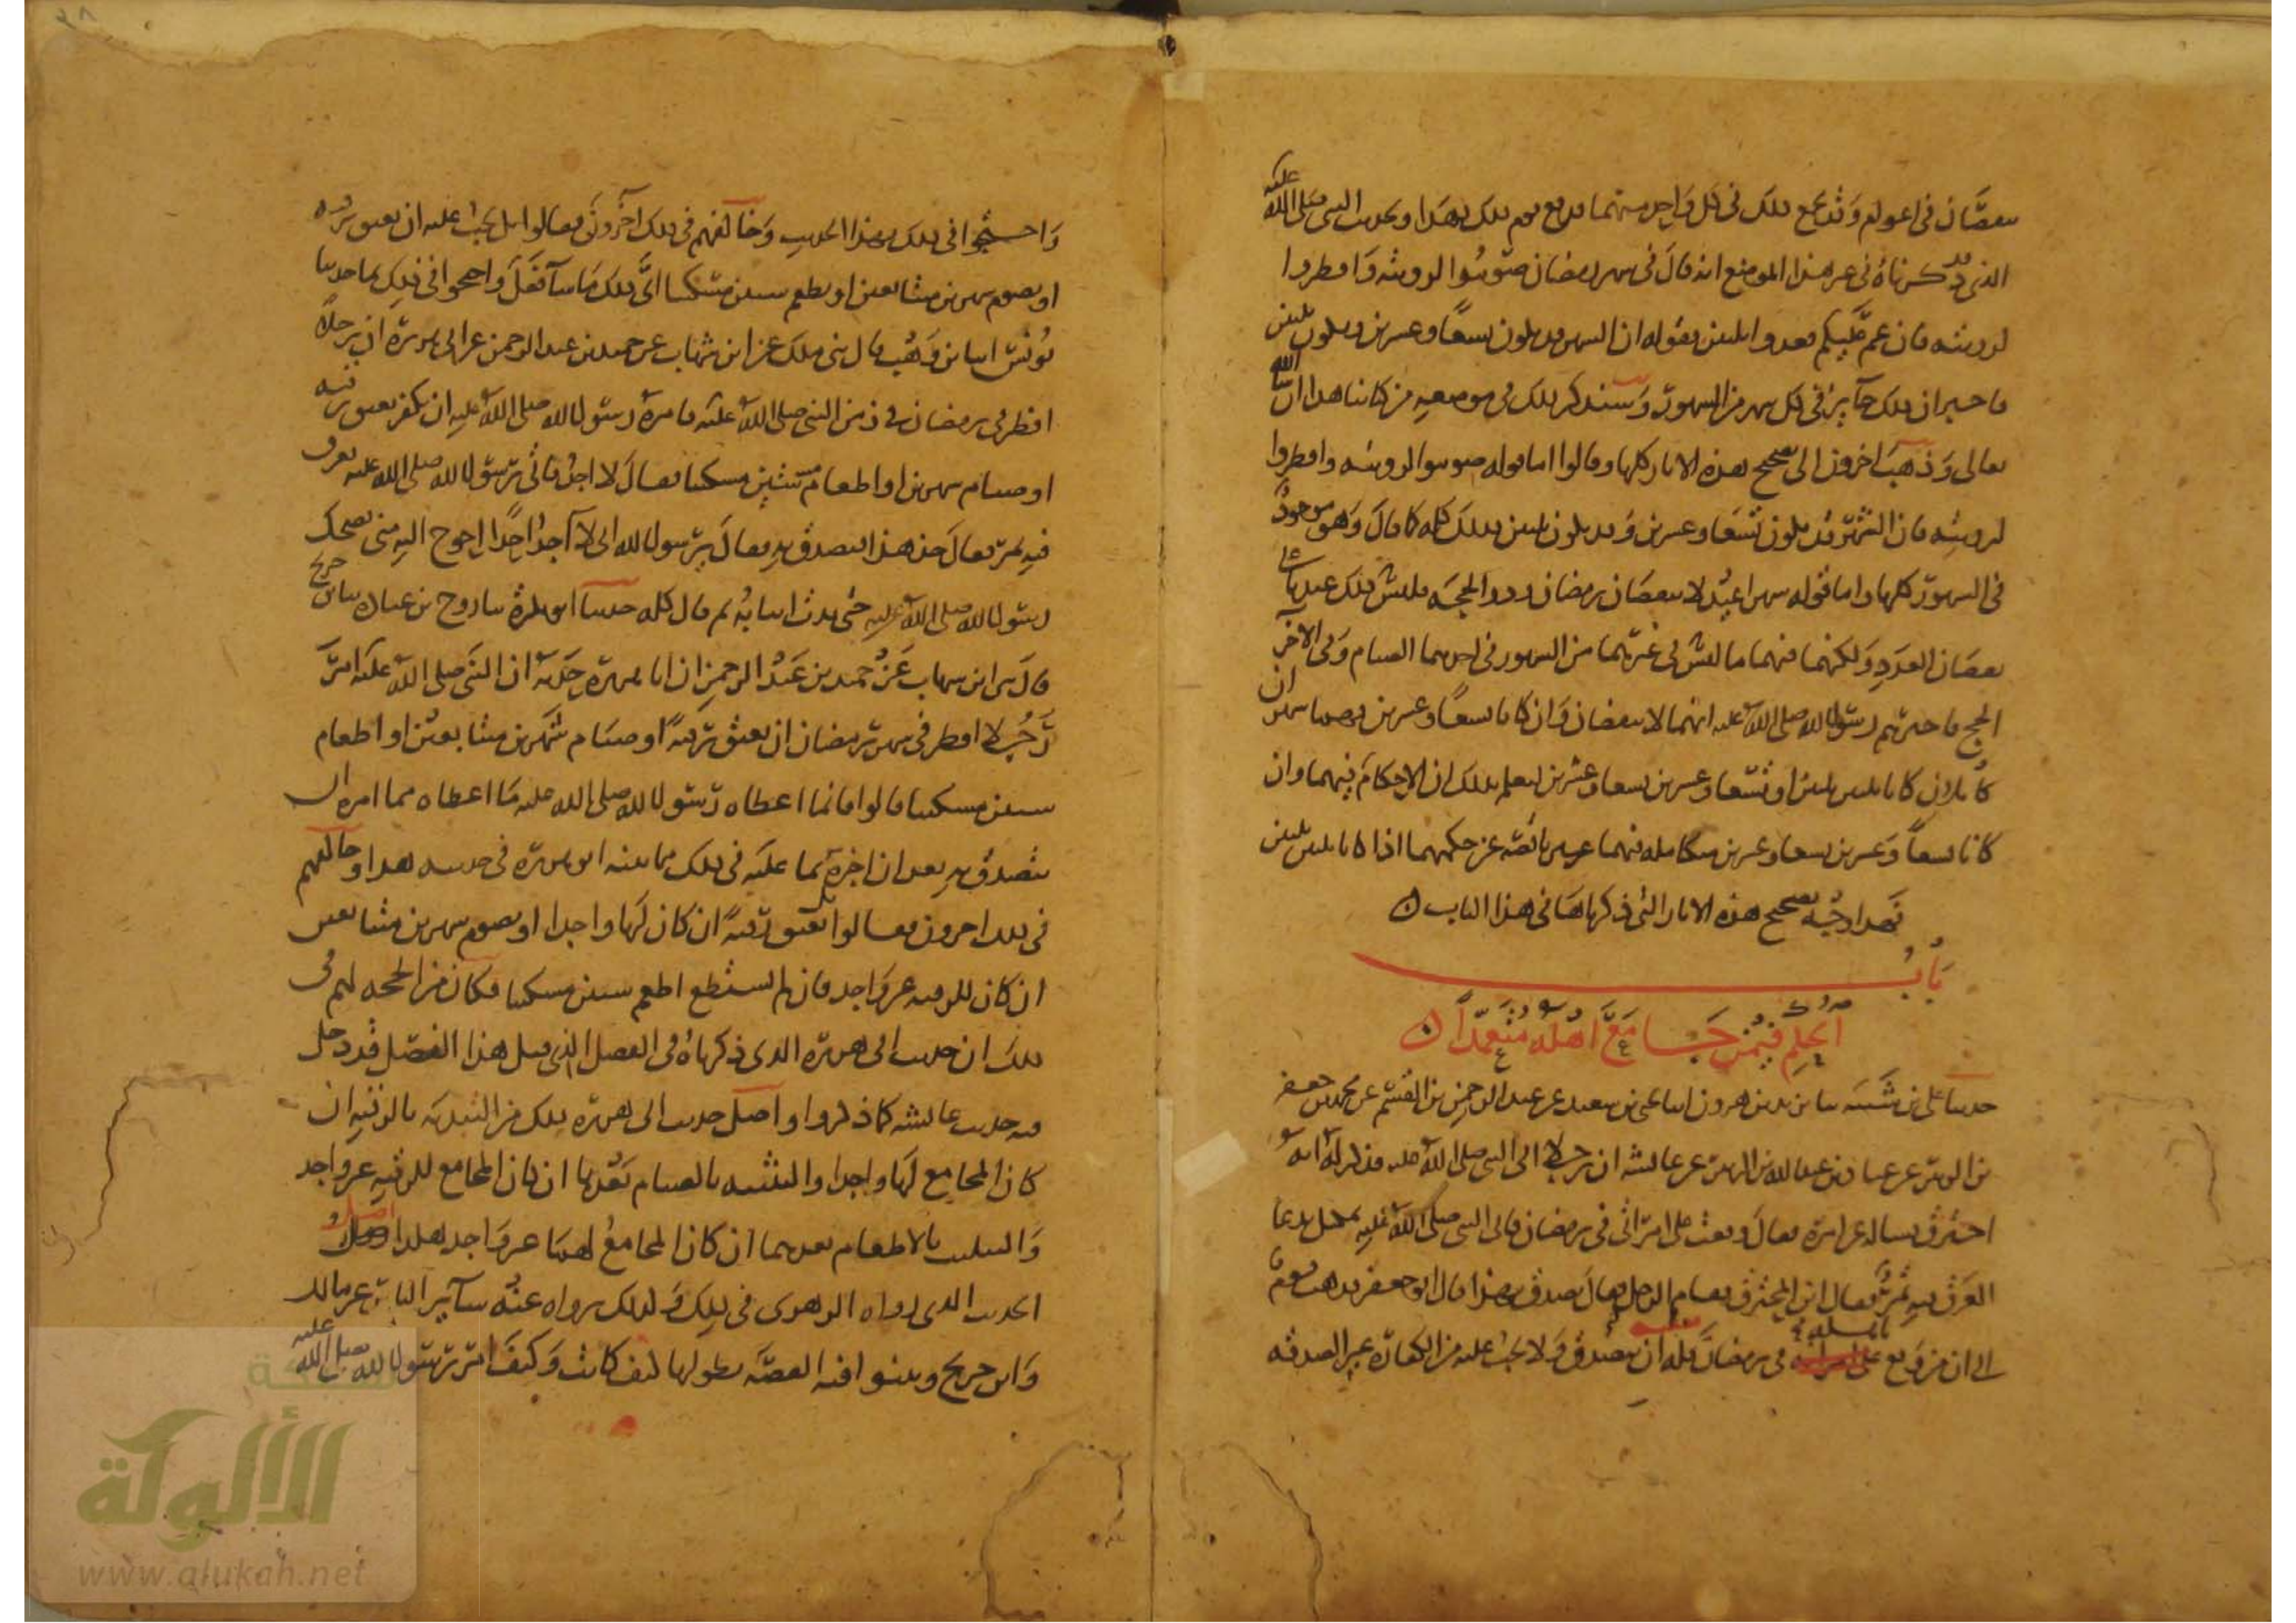 ينقصان في اعوام وقد يجمع ذلك في كل واحد منهما فدفع قوم ذلك بهذا وبحديث النبي صلى الله عليه
الذي قد ذكرناه في غير هذا الموضع انه قال في شهر رمضان صوموا لرويته وافطروا
لرويته فان غم عليكم فعدوا ثلثين وبقوله ان الشهر قد يكون تسعا وعشرين ويكون ثلثين
فاخبر ان ذلك جايز في كل شهر من الشهور وسنذكر ذلك في موضعه من كتابنا هذا ان شا الله
تعالى وذهب اخرون الى تصحيح هذه الاثار كلها وقالوا اما قوله صوموا لرويته وافطروا
لرويته فان الشهر قد يكون تسعا وعشرين وقد يكون ثلثين فذلك كله كما قال وهو موجود
في الشهور كلها واما قوله شهرا عيد لا ينقصان رمضان وذو الحجه فليس ذلك عندنا على
نقصان العدد ولكنهما فيهما ما ليس في غيرهما من الشهور في احدهما الصيام وفي الاخر
الحج فاخبرهم رسول الله صلى الله عليه انهما لا ينقصان وان كانا تسعا وعشرين وهما شهران
كاملان كانا ثلثين ثلثين او تسعا وعشرين تسعا وعشرين ليعلم بذلك ان الاحكام فيهما وان
كانا تسعا وعشرين تسعا وعشرين متكامله فيهما غير ناقصه عن حكمهما اذا كانا ثلثين ثلثين
فهذا وجه تصحيح هذه الاثار التي ذكرناها في هذا الباب
باب
الحكم فيمن جامع اهله متعمدا
حدثنا علي بن شيبه سا يزيد بن هرون انبا يحيى بن سعيد عن عبد الرحمن بن القسم عن محمد بن جعفر
بن الزبير عن عباد بن عبد الله بن الزبير عن عائشه ان رجلا اتى النبي صلى الله عليه فذكر له انه
احترق فساله عن امره فقال وقعت على امراتي في رمضان فاتى النبي صلى الله عليه بمكتل يدعا
العرق فيه تمر فقال اين المحترق فقام الرجل فقال تصدق بهذا قال ابو جعفر فذهب قوم
الى ان من وقع باهله في رمضان فعليه ان يتصدق ولا يجب عليه من الكفاره غير الصدقه
واحتجوا في ذلك بهذا الحديث وخالفهم في ذلك اخرون فقالوا بل يجب عليه ان يعتق رقبه
او يصوم شهرين متتابعين او يطعم ستين مسكينا اي ذلك ما شا فعل واحتجوا في ذلك بما حدثنا
يونس انبا بن وهب قال ثنى ملك عن ابن شهاب عن حميد بن عبد الرحمن عن ابي هريره ان رجلا
افطر في رمضان في زمن النبي صلى الله عليه فامره رسول الله صلى الله عليه ان يكفر بعتق رقبه
او صيام شهرين او اطعام ستين مسكينا فقال لا اجد فاتي رسول الله صلى الله عليه بعرق
فيه تمر فقال خذ هذا فتصدق به فقال يرسول الله اني لا اجد احدا احوج اليه مني فضحك
رسول الله صلى الله عليه حتى بدت انيابه ثم قال كله حدثنا ابو بكرة سا روح بن عباده سا ابن جريج
قال ثنى ابن شهاب عن حميد بن عبد الرحمن ان ابا هريره حدثه ان النبي صلى الله عليه امر
رجلا افطر في شهر رمضان ان يعتق رقبة او صيام شهرين متتابعين او اطعام
ستين مسكينا قالوا فانما اعطاه رسول الله صلى الله عليه ما اعطاه مما امره ان
يتصدق به بعد ان اخبره بما عليه في ذلك مما بينه ابو هريره في حديثه هذا وخالفهم
في ذلك اخرون فقالوا بل يعتق رقبة ان كان لها واجدا او يصوم شهرين متتابعين
ان كان للرقبه غير واجد فان لم يستطع اطعم ستين مسكينا فكان من الحجه لهم في
ذلك ان حديث ابي هريره الذي ذكرناه في الفصل الذي قبل هذا الفصل قد دخل
فيه حديث عائشه كما ذكروا واصل حديث ابي هريره ذلك من التبديه بالرقبه ان
كان المجامع لها واجدا والتثنيه بالصيام بعدها ان كان المجامع للرقبه غير واجد
والتثليث بالاطعام بعدهما ان كان المجامع لهما غير واجد هكذا اصل
الحديث الذي رواه الزهري في ذلك وكذلك رواه عنه ساير الناس غير مالك
وابن جريج وبينوا فيه القصه بطولها كيف كانت وكيف امر رسول الله صلى الله عليه
شبكة
الألوكة
www.alukah.net